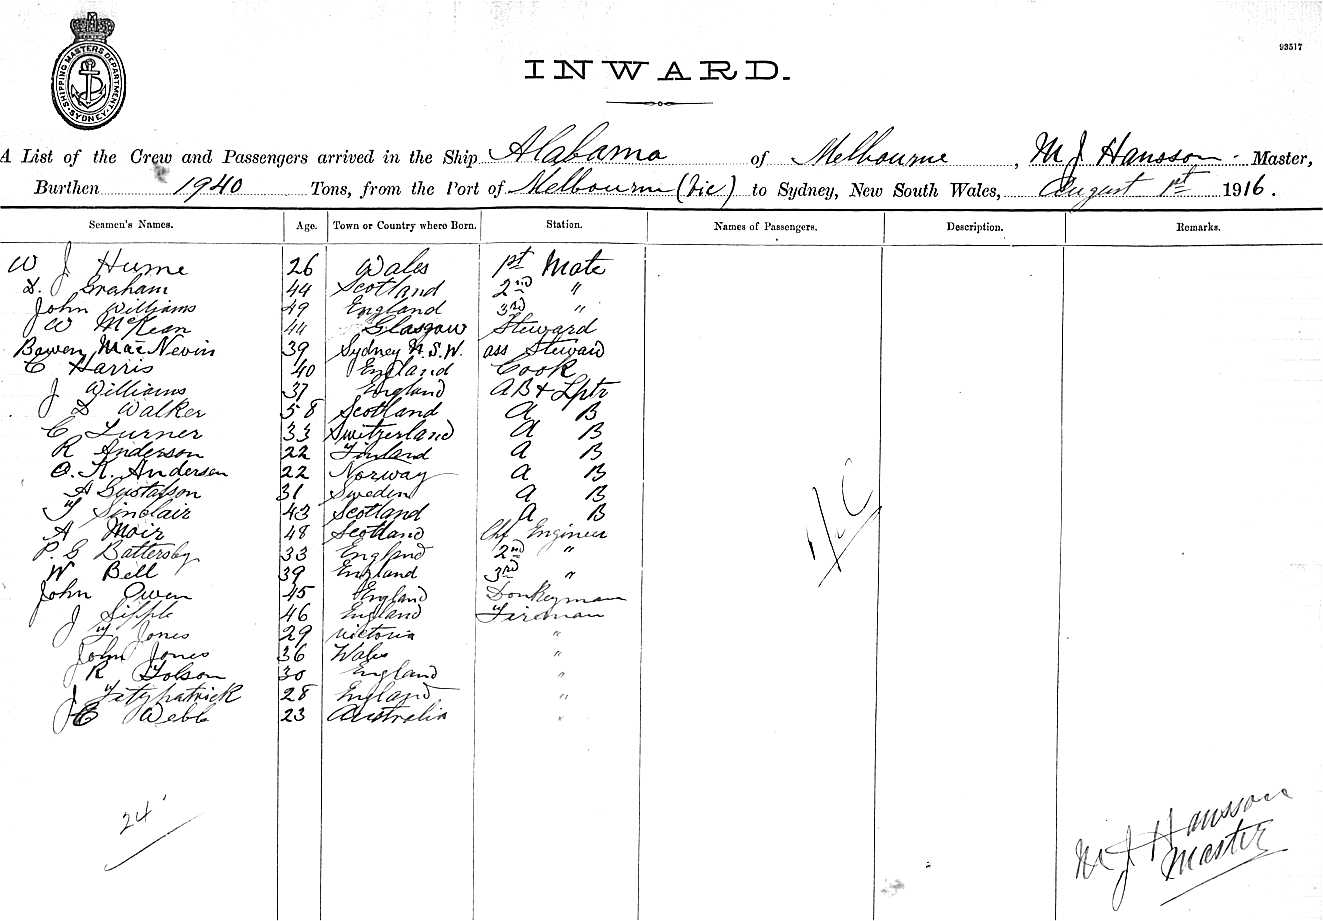 SHIPPING MASTERS DEPARTMENT. SYDNEY.
93517
INWARD.
A List of the Crew and Passengers arrived in the Ship Alabama of Melbourne, M J Hansson Master,
Burthen 1940 Tons, from the Port of Melbourne (Vic) to Sydney, New South Wales, August 1st 1916.
Seamen's Names. Age. Town or Country where Born. Station. Names of Passengers. Description. Remarks.
W J Hume 26 Wales 1st Mate
D. Graham 44 Scotland 2nd "
John Williams 49 England 3rd "
W McKean 44 Glasgow Steward
Bowen MacNevin 39 Sydney N.S.W. ass Steward
C Harris 40 England Cook
J Williams 37 England AB & Lptr
J D Walker 58 Scotland A B
C Turner 33 Switzerland A B
R Anderson 22 Finland A B
O. K. Andersen 22 Norway A B
A Gustafson 31 Sweden A B
F Sinclair 43 Scotland A B
A Moir 48 Scotland Chf Engineer
P. G Battersby 33 England 2nd "
W Bell 39 England 3rd "
John Owen 45 England Donkeyman
J Sipple 46 England Fireman
F Jones 29 Victoria "
John Jones 36 Wales "
R Tolson 30 England "
J Fitzpatrick 28 England "
J E Webb 23 Australia "
24
M J Hansson
Master